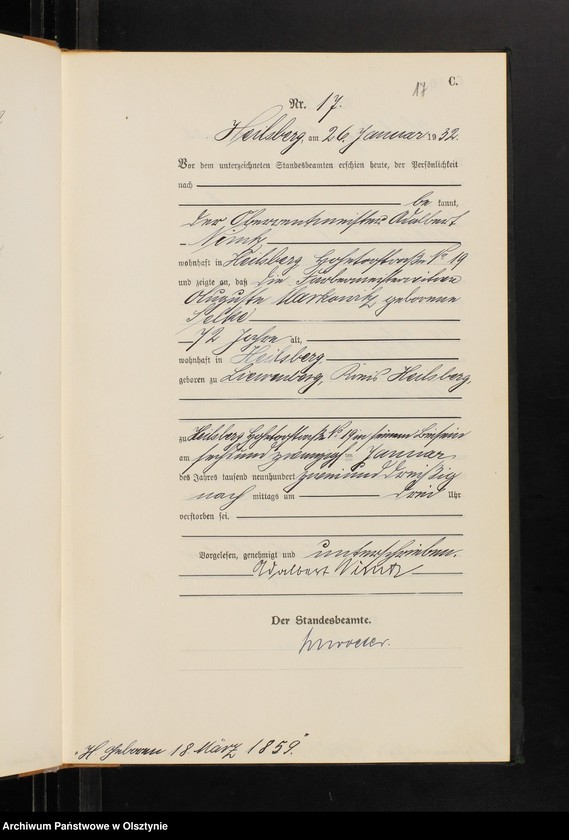 17 C.
Nr. 17.
Heilsberg, am 26. Januar 1932.
Vor dem unterzeichneten Standesbeamten erschien heute, der Persönlichkeit
nach
be kannt,
der Oberrentmeister Adalbert
wohnhaft in Heilsberg Hohetorstraße No 19
und zeigte an, daß die Färbermeisterwitwe
Auguste Markowitz geborene
72 Jahre alt,
wohnhaft in Heilsberg
geboren zu Liewenberg, Kreis Heilsberg,
zu Heilsberg Hohetorstraße No 19 in seinem Beisein
am sechsundzwanzigsten Januar
des Jahres tausend neunhundert zweiunddreißig
nach mittags um drei Uhr
verstorben sei.
Vorgelesen, genehmigt und unterschrieben.
Adalbert
Der Standesbeamte.
geboren 18 März 1859."
Archiwum Państwowe w Olsztynie